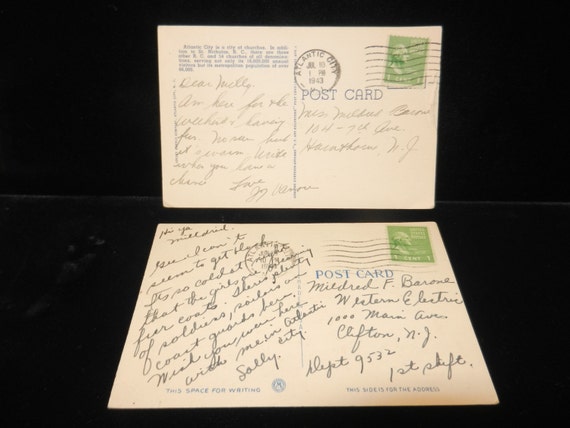 Atlantic City is a city of churches. In addi-
tion to St. Nicholas, R. C., there are three
other R. C. and 54 churches of all denomina-
tions, serving not only its 16,000,000 annual
visitors but its metropolitan population of over
ATLANTIC CITY
JUL 10
1 PM
1943
POST CARD
Dear Milly
Am here for the
weekend & having
fun.
it's warm. Write
when you have a
chance Love
Miss Mildred Barone
104 - 7th Ave.
Hawthorn, N. J.
Hi Ya
Mildred.
Gee I can't
seem to get black.
It's so cold at night
that the girls are wearing
fur coats. There's plenty
of soldiers, sailors and
coast guards here.
Wish you were here
with me in Atlantic
City.
Sally.
POST CARD
1 CENT 1
Mildred F. Barone
Western Electric
1000 Main Ave.
Clifton, N.J.
Dept 9532
1st shift.
THIS SPACE FOR WRITING
THIS SIDE IS FOR THE ADDRESS